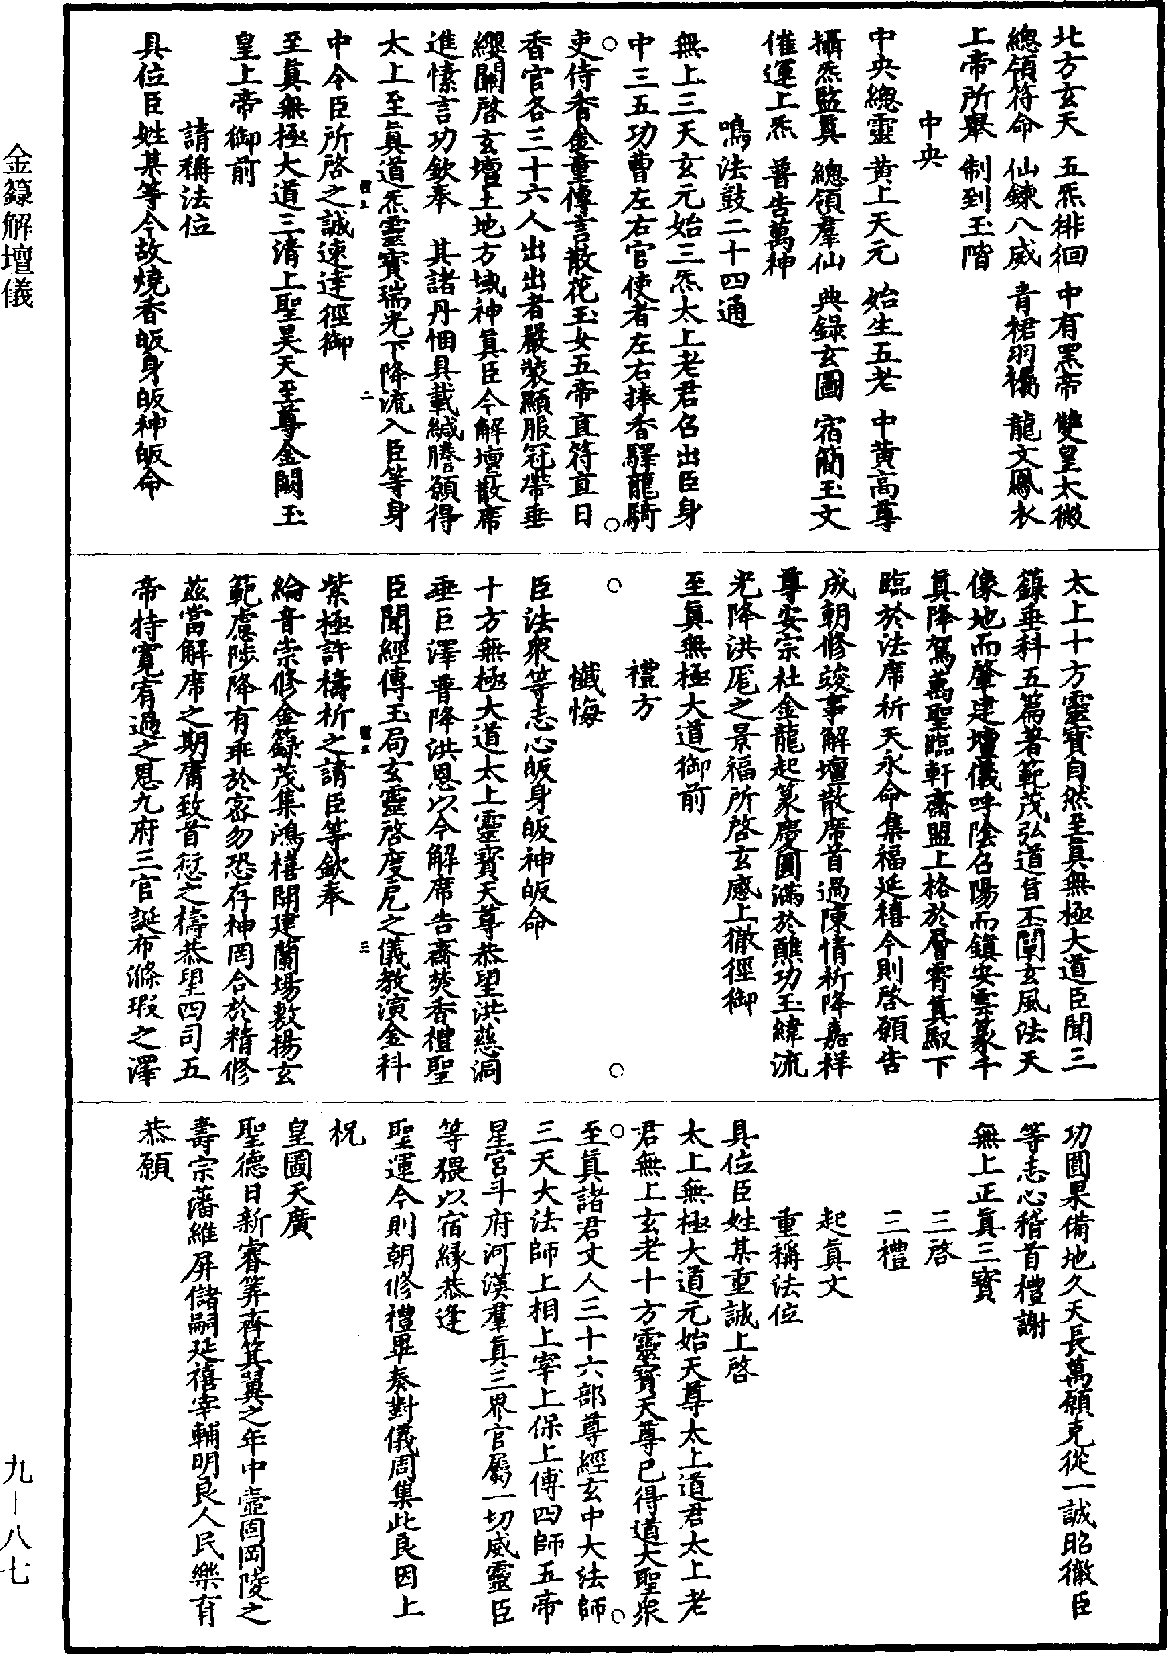 金籙解壇儀
北方玄天 五炁徘徊 中有黑帝 雙皇太微
總領符命 仙鍊八威 青裙羽褐 龍文鳳衣
上帝所舉 制到玉階
中央
中央總靈 黃上天元 始生五老 中黃高尊
攝炁監真 總領羣仙 典錄玄圖 宿簡玉文
催運上炁 普告萬神
鳴法鼓二十四通
無上三天玄元始三炁太上老君召出臣身
中三五功曹左右官使者左右捧香驛龍騎
吏侍香金童傳言散花玉女五帝直符直日
香官各三十六人出出者嚴裝顯服冠帶垂
纓關啓玄壇土地方域神真臣今解壇散席
進愫言功欽奉 其諸丹悃具載緘謄願得
太上至真道炁靈寶瑞光下降流入臣等身
中令臣所啓之誠速達徑御
至真無極大道三清上聖昊天至尊金闕玉
皇上帝御前
請稱法位
具位臣姓某等今故燒香皈身皈神皈命
太上十方靈寶自然至真無極大道臣聞三
籙垂科五篇著範茂弘道旨丕闡玄風法天
像地而肇建壇儀呼陰召陽而鎮安雲篆千
真降駕萬聖臨軒齋盟上格於層霄真馭下
臨於法席祈天永命集福延禧今則啓願告
成朝修竣事解壇散席首過陳情祈降嘉祥
尊安宗社金龍起篆慶圓滿於醮功玉緯流
光降洪厖之景福所啓玄感上徹徑御
至真無極大道御前
禮方
懺悔
臣法衆等志心皈身皈神皈命
十方無極大道太上靈寶天尊恭望洪慈洞
垂巨澤普降洪恩以今解席告齋焚香禮聖
臣聞經傳玉局玄靈啓度戹之儀教演金科
紫極許禱祈之請臣等欽奉
綸音崇修金籙茂集鴻禧開建蘭場敷揚玄
範慮陟降有乖於宻勿恐存神罔合於精修
茲當解席之期庸致首愆之禱恭望四司五
帝特寬宥過之恩九府三官誕布滌瑕之澤
功圓果備地久天長萬願克從一誠昭徹臣
等志心稽首禮謝
無上正真三寶
三啓
三禮
起真文
重稱法位
具位臣姓某重誠上啓
太上無極大道元始天尊太上道君太上老
君無上玄老十方靈寶天尊已得道大聖衆
至真諸君丈人三十六部尊經玄中大法師
三天大法師上相上宰上保上傅四師五帝
星宮斗府河漢羣真三界官屬一切威靈臣
等猥以宿緣恭逢
聖運今則朝修禮畢奏對儀周集此良因上
祝
皇圖天廣
聖德日新睿筭齊箕翼之年中壼固岡陵之
壽宗藩維屏儲嗣延禧宰輔明良人民樂育
恭願
九－八七